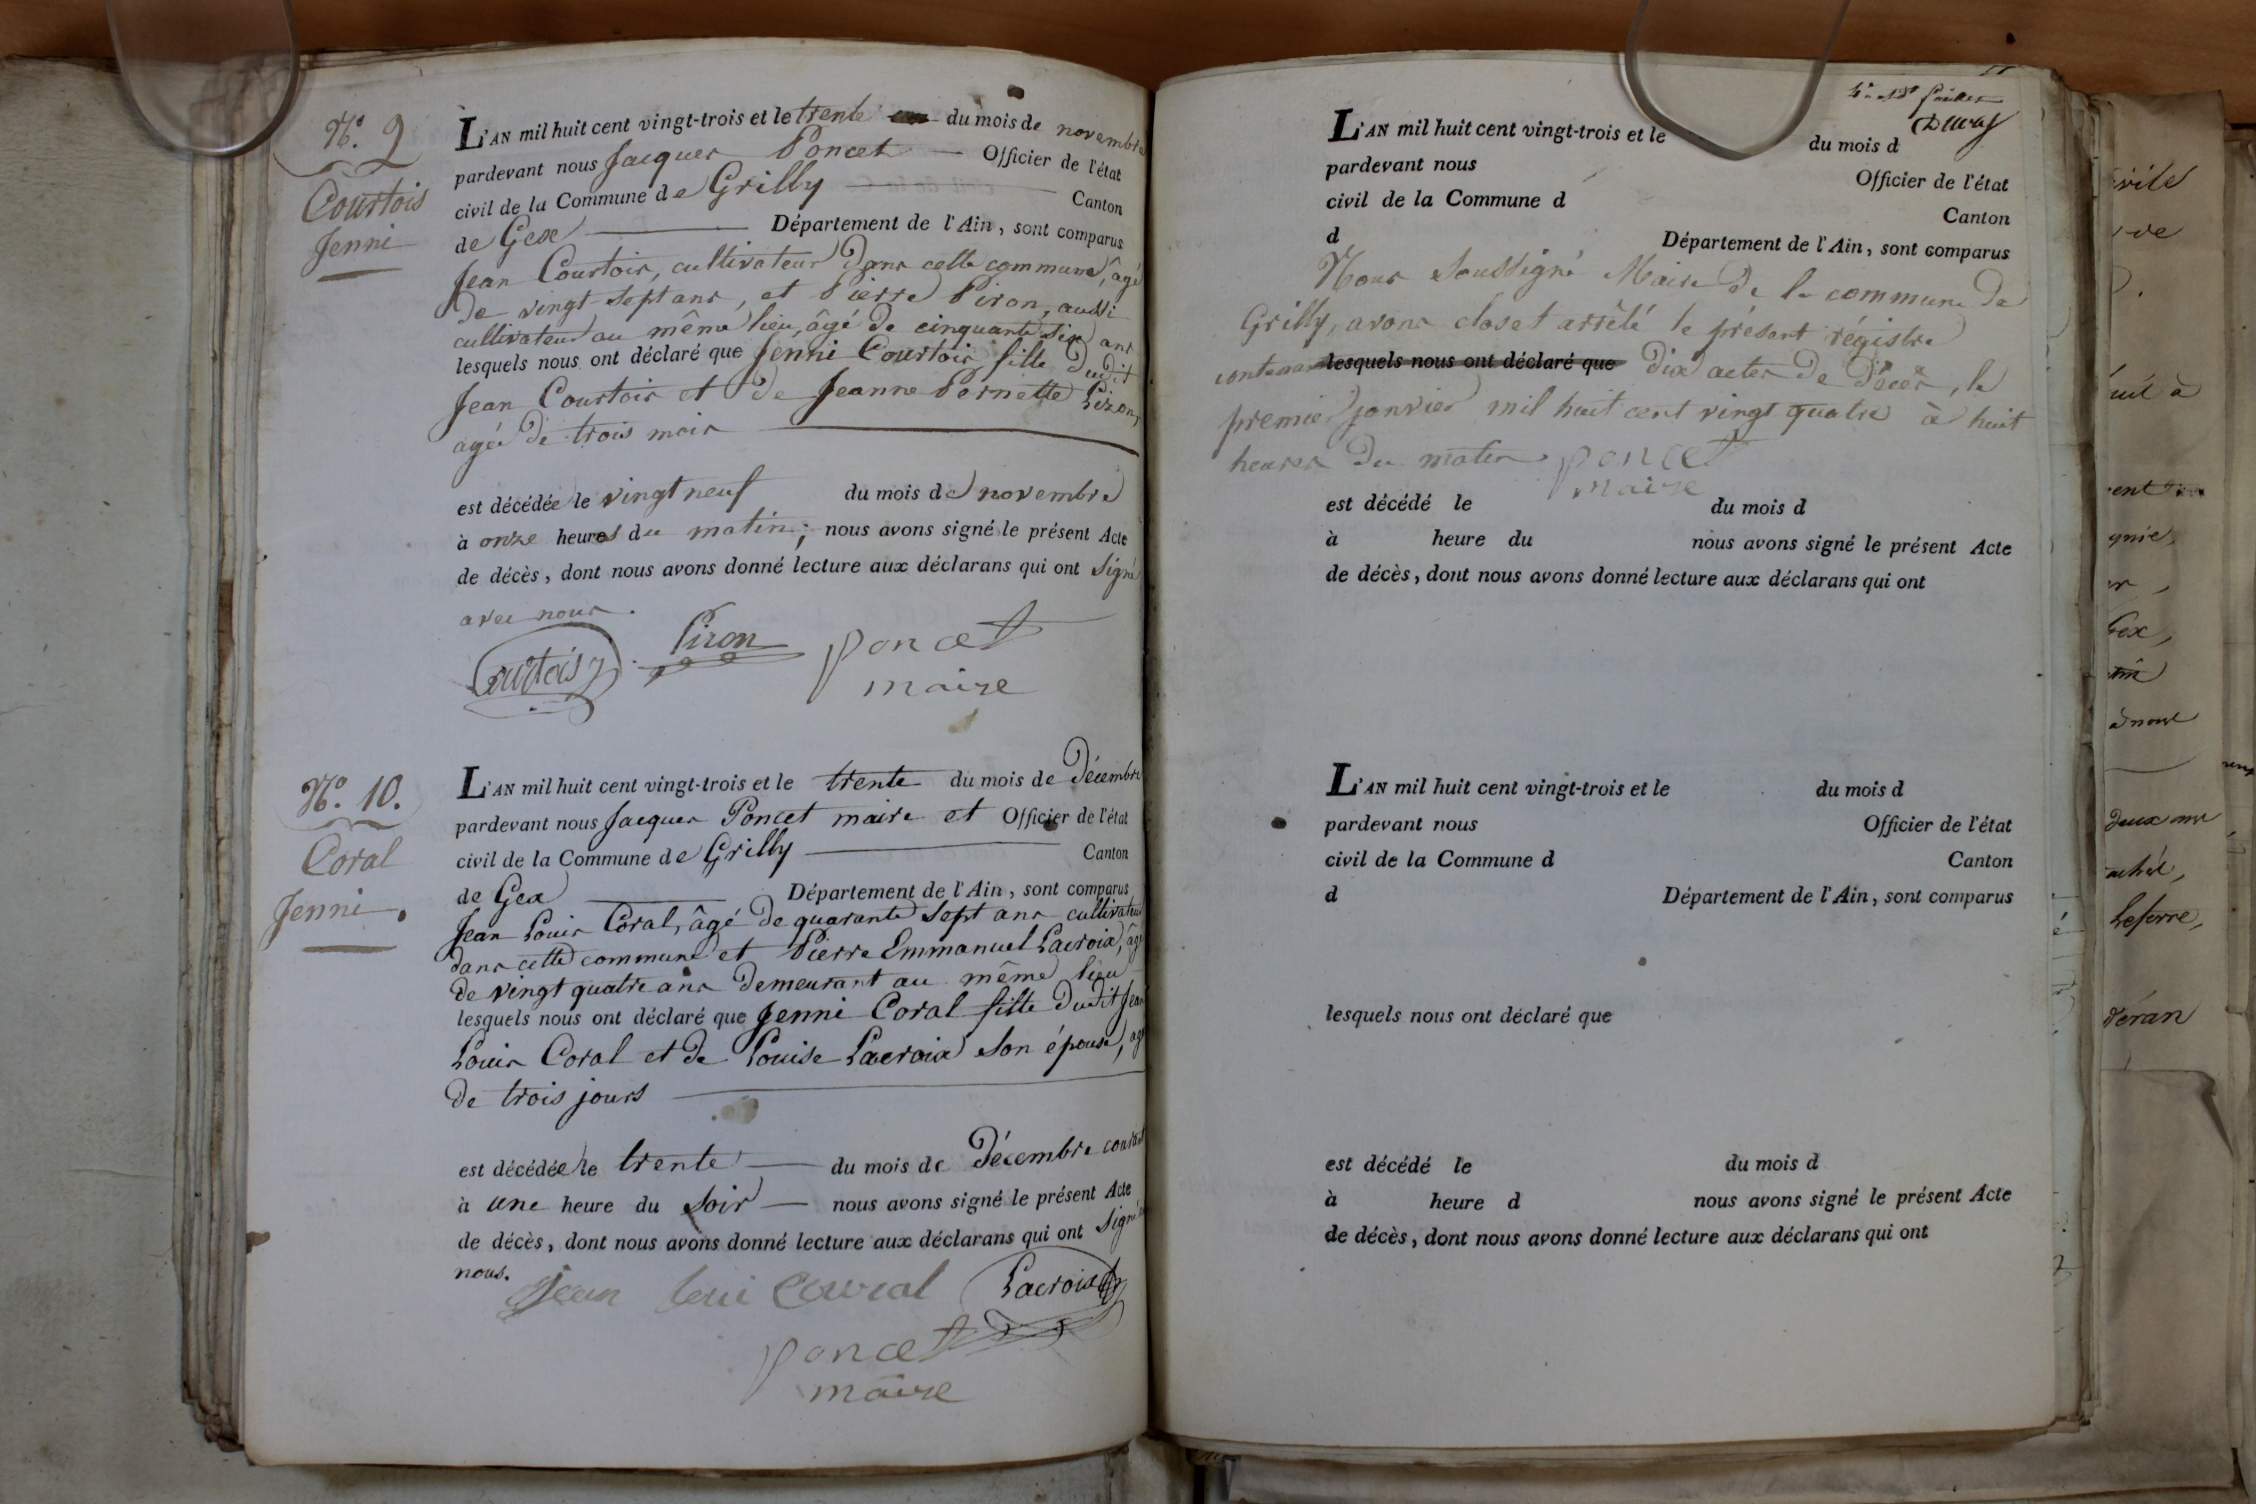 N.º 9
Courtois
Jenni
L'AN mil huit cent vingt-trois et le trente du mois de novembre
pardevant nous Jacques Poncet — Officier de l'état
civil de la Commune de Grilly — Canton
de Gex — Département de l'Ain, sont comparus
Jean Courtois, cultivateur dans cette commune, âgé
de vingt sept ans, et Pierre Piron, aussi
cultivateur au même lieu, âgé de cinquante six ans
lesquels nous ont déclaré que Jenni Courtois fille dudit
Jean Courtois et de Jeanne Pernette Lizon,
agée de trois mois
est décédée le vingt neuf du mois de novembre
à onze heures du matin; nous avons signé le présent Acte
de décès, dont nous avons donné lecture aux déclarans qui ont signé
avec nous.
Courtois Piron Poncet
maire
N.º 10.
Coral
Jenni.
L'AN mil huit cent vingt-trois et le trente du mois de Décembre
pardevant nous Jacques Poncet maire et Officier de l'état
civil de la Commune de Grilly — Canton
de Gex — Département de l'Ain, sont comparus
Jean Louis Coral, âgé de quarante sept ans cultivateur
dans cette commune et Pierre Emmanuel Lacroix, âgé
de vingt quatre ans demeurant au même lieu
lesquels nous ont déclaré que Jenni Coral fille dudit Jean
Louis Coral et de Louise Lacroix son épouse, agé
de trois jours
est décédée le trente — du mois de Décembre courant
à une heure du soir — nous avons signé le présent Acte
de décès, dont nous avons donné lecture aux déclarans qui ont signé
nous.
Jean Loui Courral Lacroix
Poncet
maire
L'AN mil huit cent vingt-trois et le du mois d
pardevant nous Officier de l'état
civil de la Commune d Canton
d Département de l'Ain, sont comparus
Nous soussigné Maire de la commune de
Grilly, avons clos et arrêté le présent régistre
contenant lesquels nous ont déclaré que dix actes de décès, le
premier janvier mil huit cent vingt quatre à huit
heures du matin. Poncet
maire
est décédé le du mois d
à heure du nous avons signé le présent Acte
de décès, dont nous avons donné lecture aux déclarans qui ont
L'AN mil huit cent vingt-trois et le du mois d
pardevant nous Officier de l'état
civil de la Commune d Canton
d Département de l'Ain, sont comparus
lesquels nous ont déclaré que
est décédé le du mois d
à heure d nous avons signé le présent Acte
de décès, dont nous avons donné lecture aux déclarans qui ont